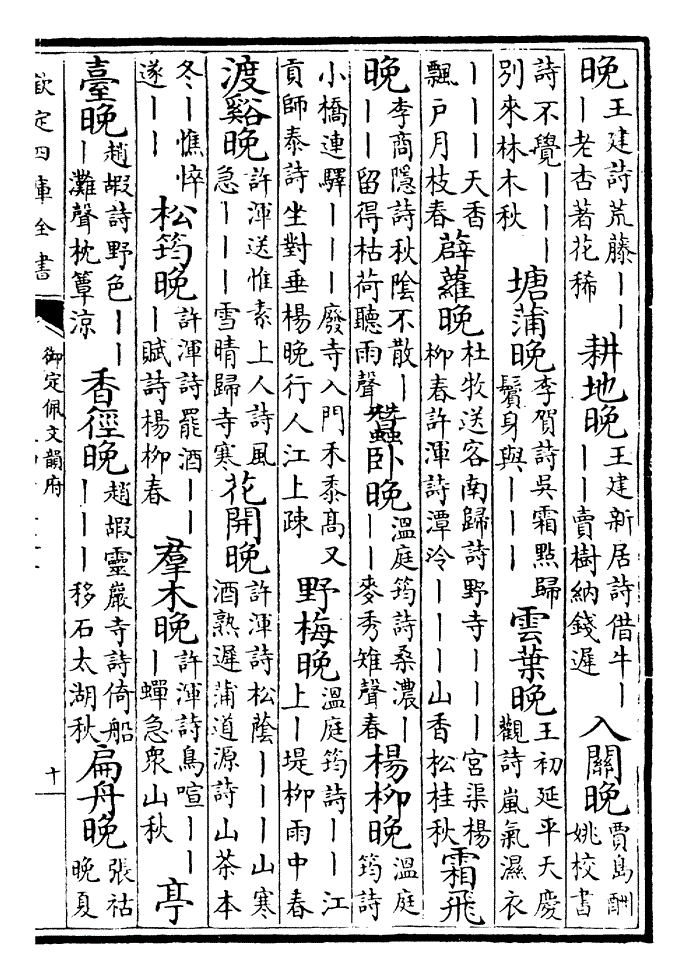 晚王建詩荒藤丨丨丨老杏著花稀耕地晚王建新居詩借牛丨丨丨賣樹納錢遲入關晚賈島酬姚校書
詩不覺丨丨丨別來林木秋塘蒲晚李賀詩吳霜點歸鬢身與丨丨丨雲葉晚王初延平天慶觀詩嵐氣濕衣
丨丨丨天香飄戶月枝春薜蘿晚杜牧送客南歸詩野寺丨丨丨宮渠楊柳春許渾詩潭冷丨丨丨山香松桂秋霜飛
晚李商隱詩秋陰不散丨丨丨留得枯荷聽雨聲蠶卧晚溫庭筠詩桑濃丨丨丨麥秀雉聲春楊柳晚溫庭筠詩
小橋連驛丨丨丨廢寺入門禾黍髙又貢師泰詩坐對垂楊晚行人江上疎野梅晚溫庭筠詩丨丨江上丨堤柳雨中春
渡谿晚許渾送惟素上人詩風急丨丨丨雪晴歸寺寒花開晚許渾詩松蔭丨丨丨山寒酒熟遲蒲道源詩山茶本
冬丨憔悴遂丨丨松筠晚許渾詩罷酒丨丨丨賦詩楊柳春羣木晚許渾詩鳥喧丨丨丨蟬急衆山秋亭
臺晚趙嘏詩野色丨丨丨灘聲枕簟涼香徑晚趙嘏靈巖寺詩倚船丨丨丨移石太湖秋扁舟晚張祜晚夏
欽定四庫全書
御定佩文韻府
十